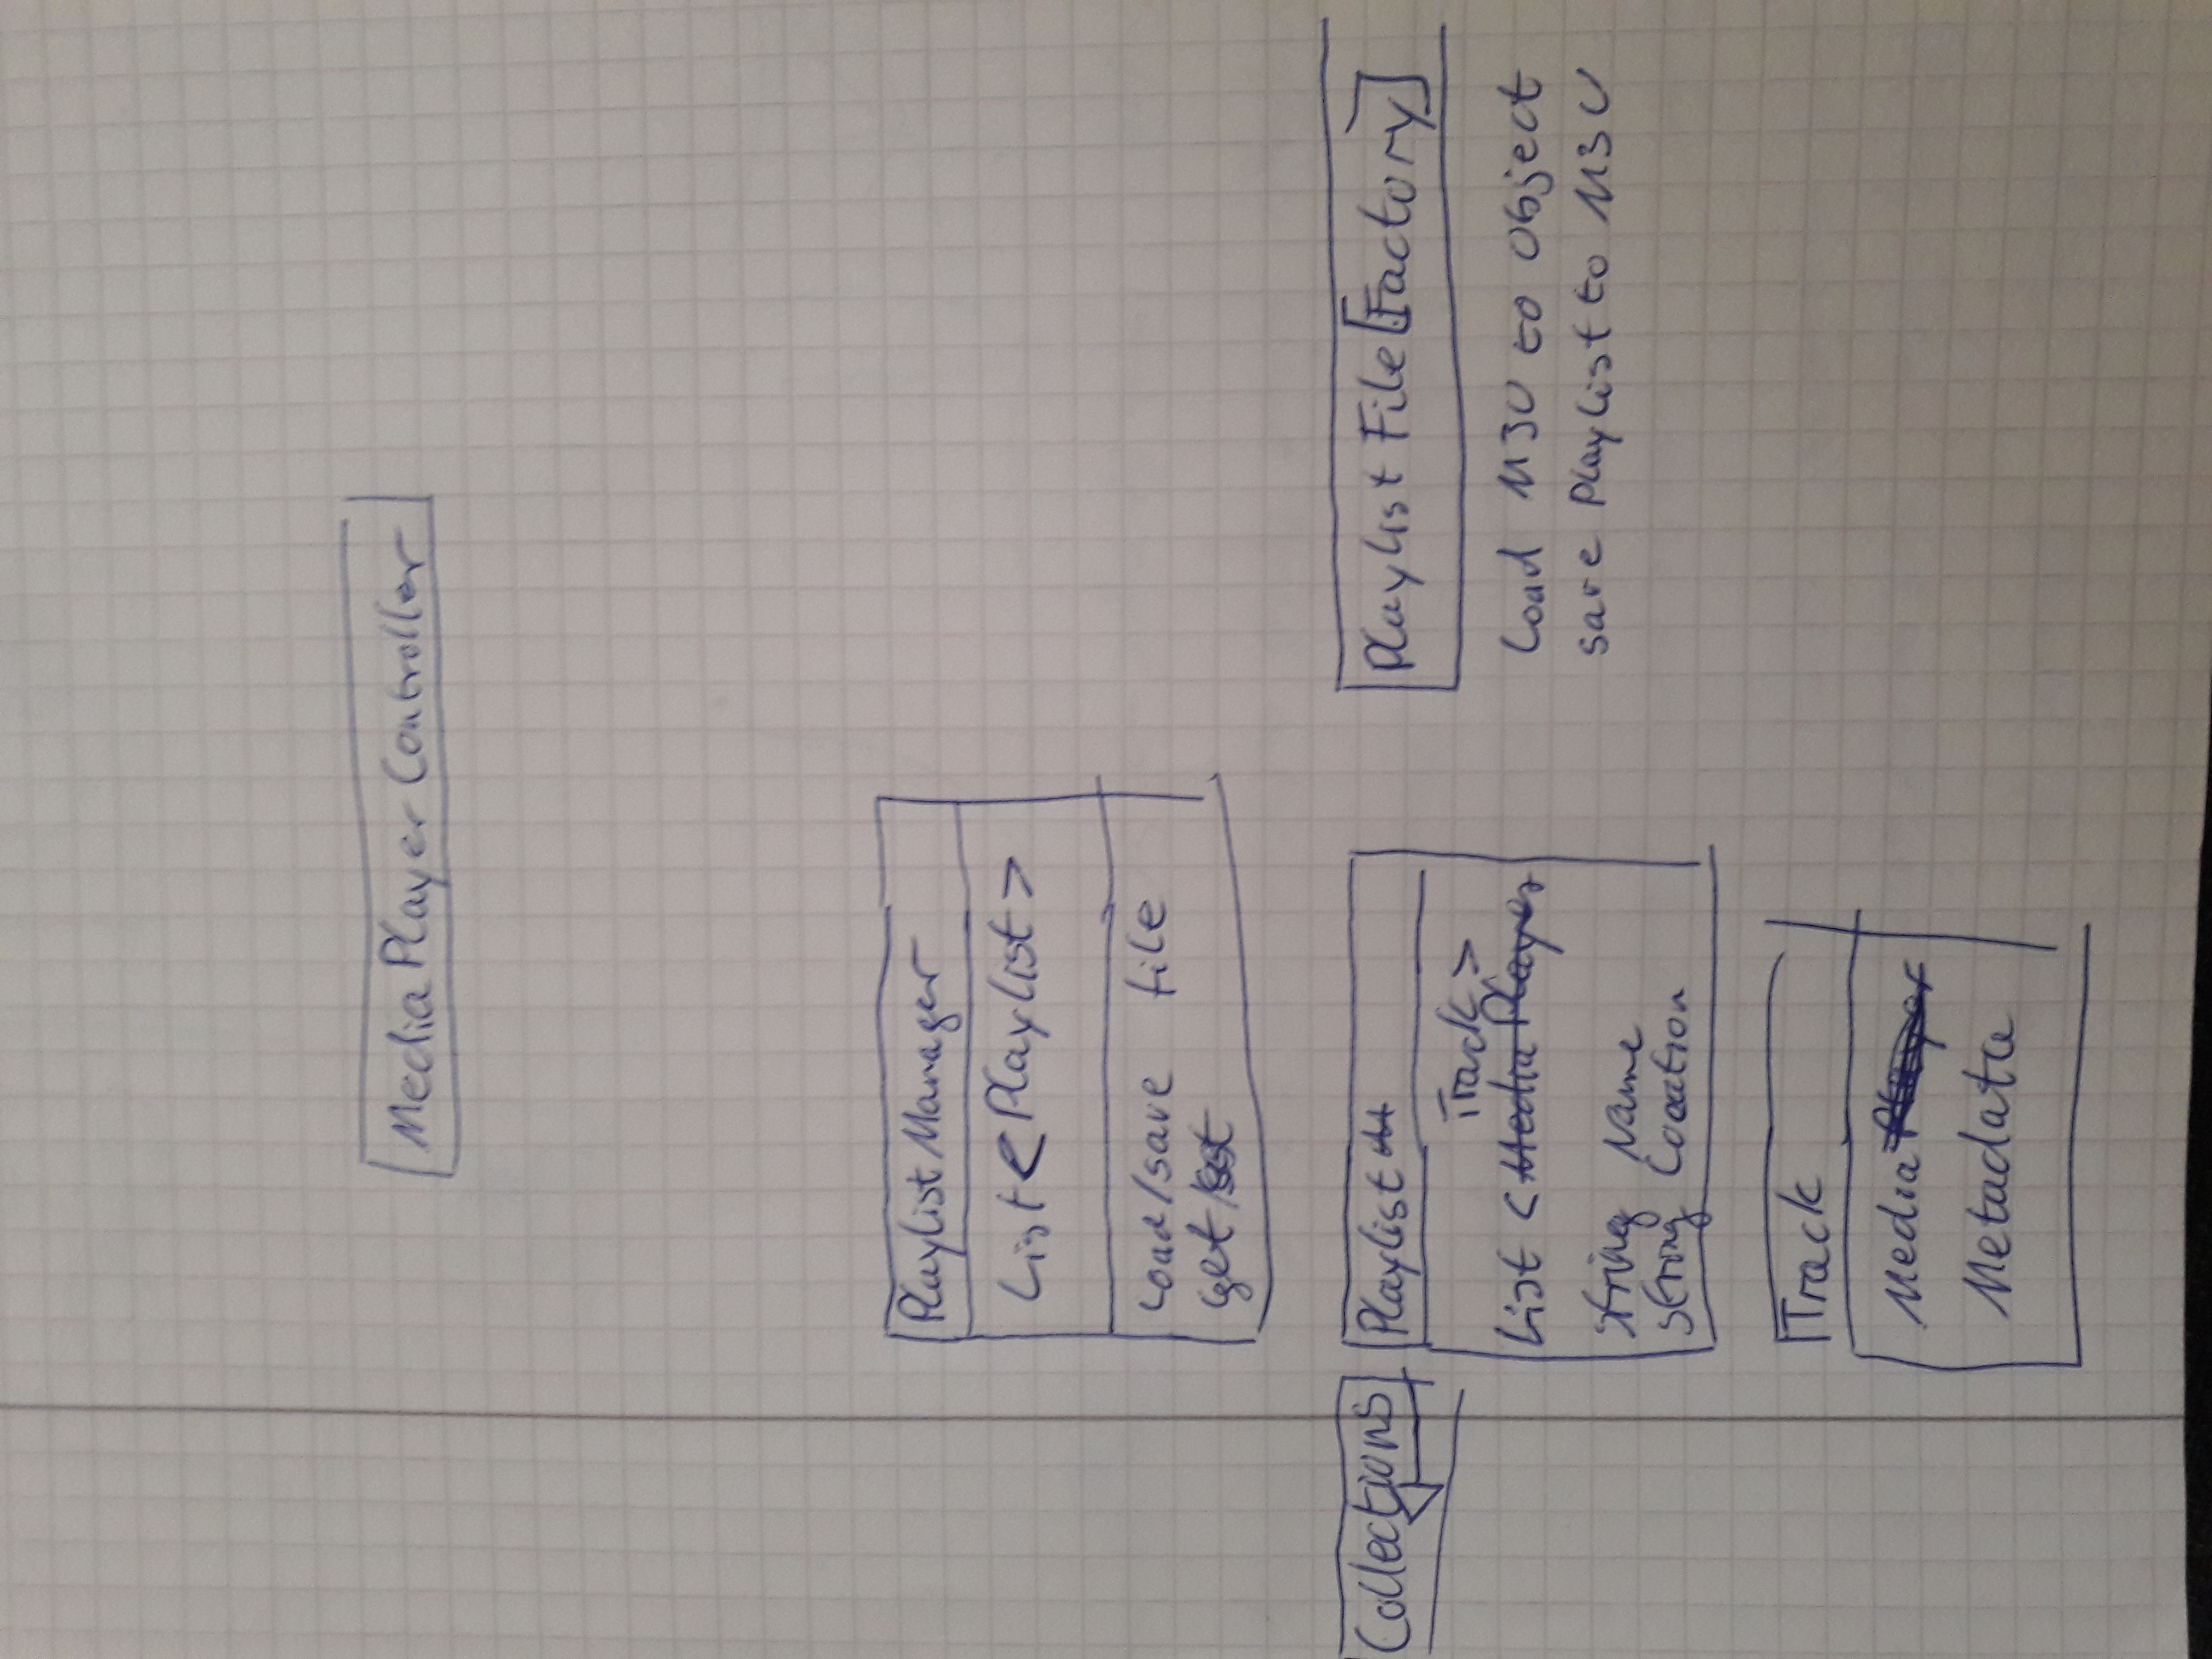 MediaPlayerController
PlaylistManager
List<Playlist>
Load/save file
get/set
Collections
Playlist
Track>
List <MediaPlayer
string Name
string Location
Track
Media Player
Metadata
Playlist File[Factory]
Load M3U to Object
save Playlist to M3U